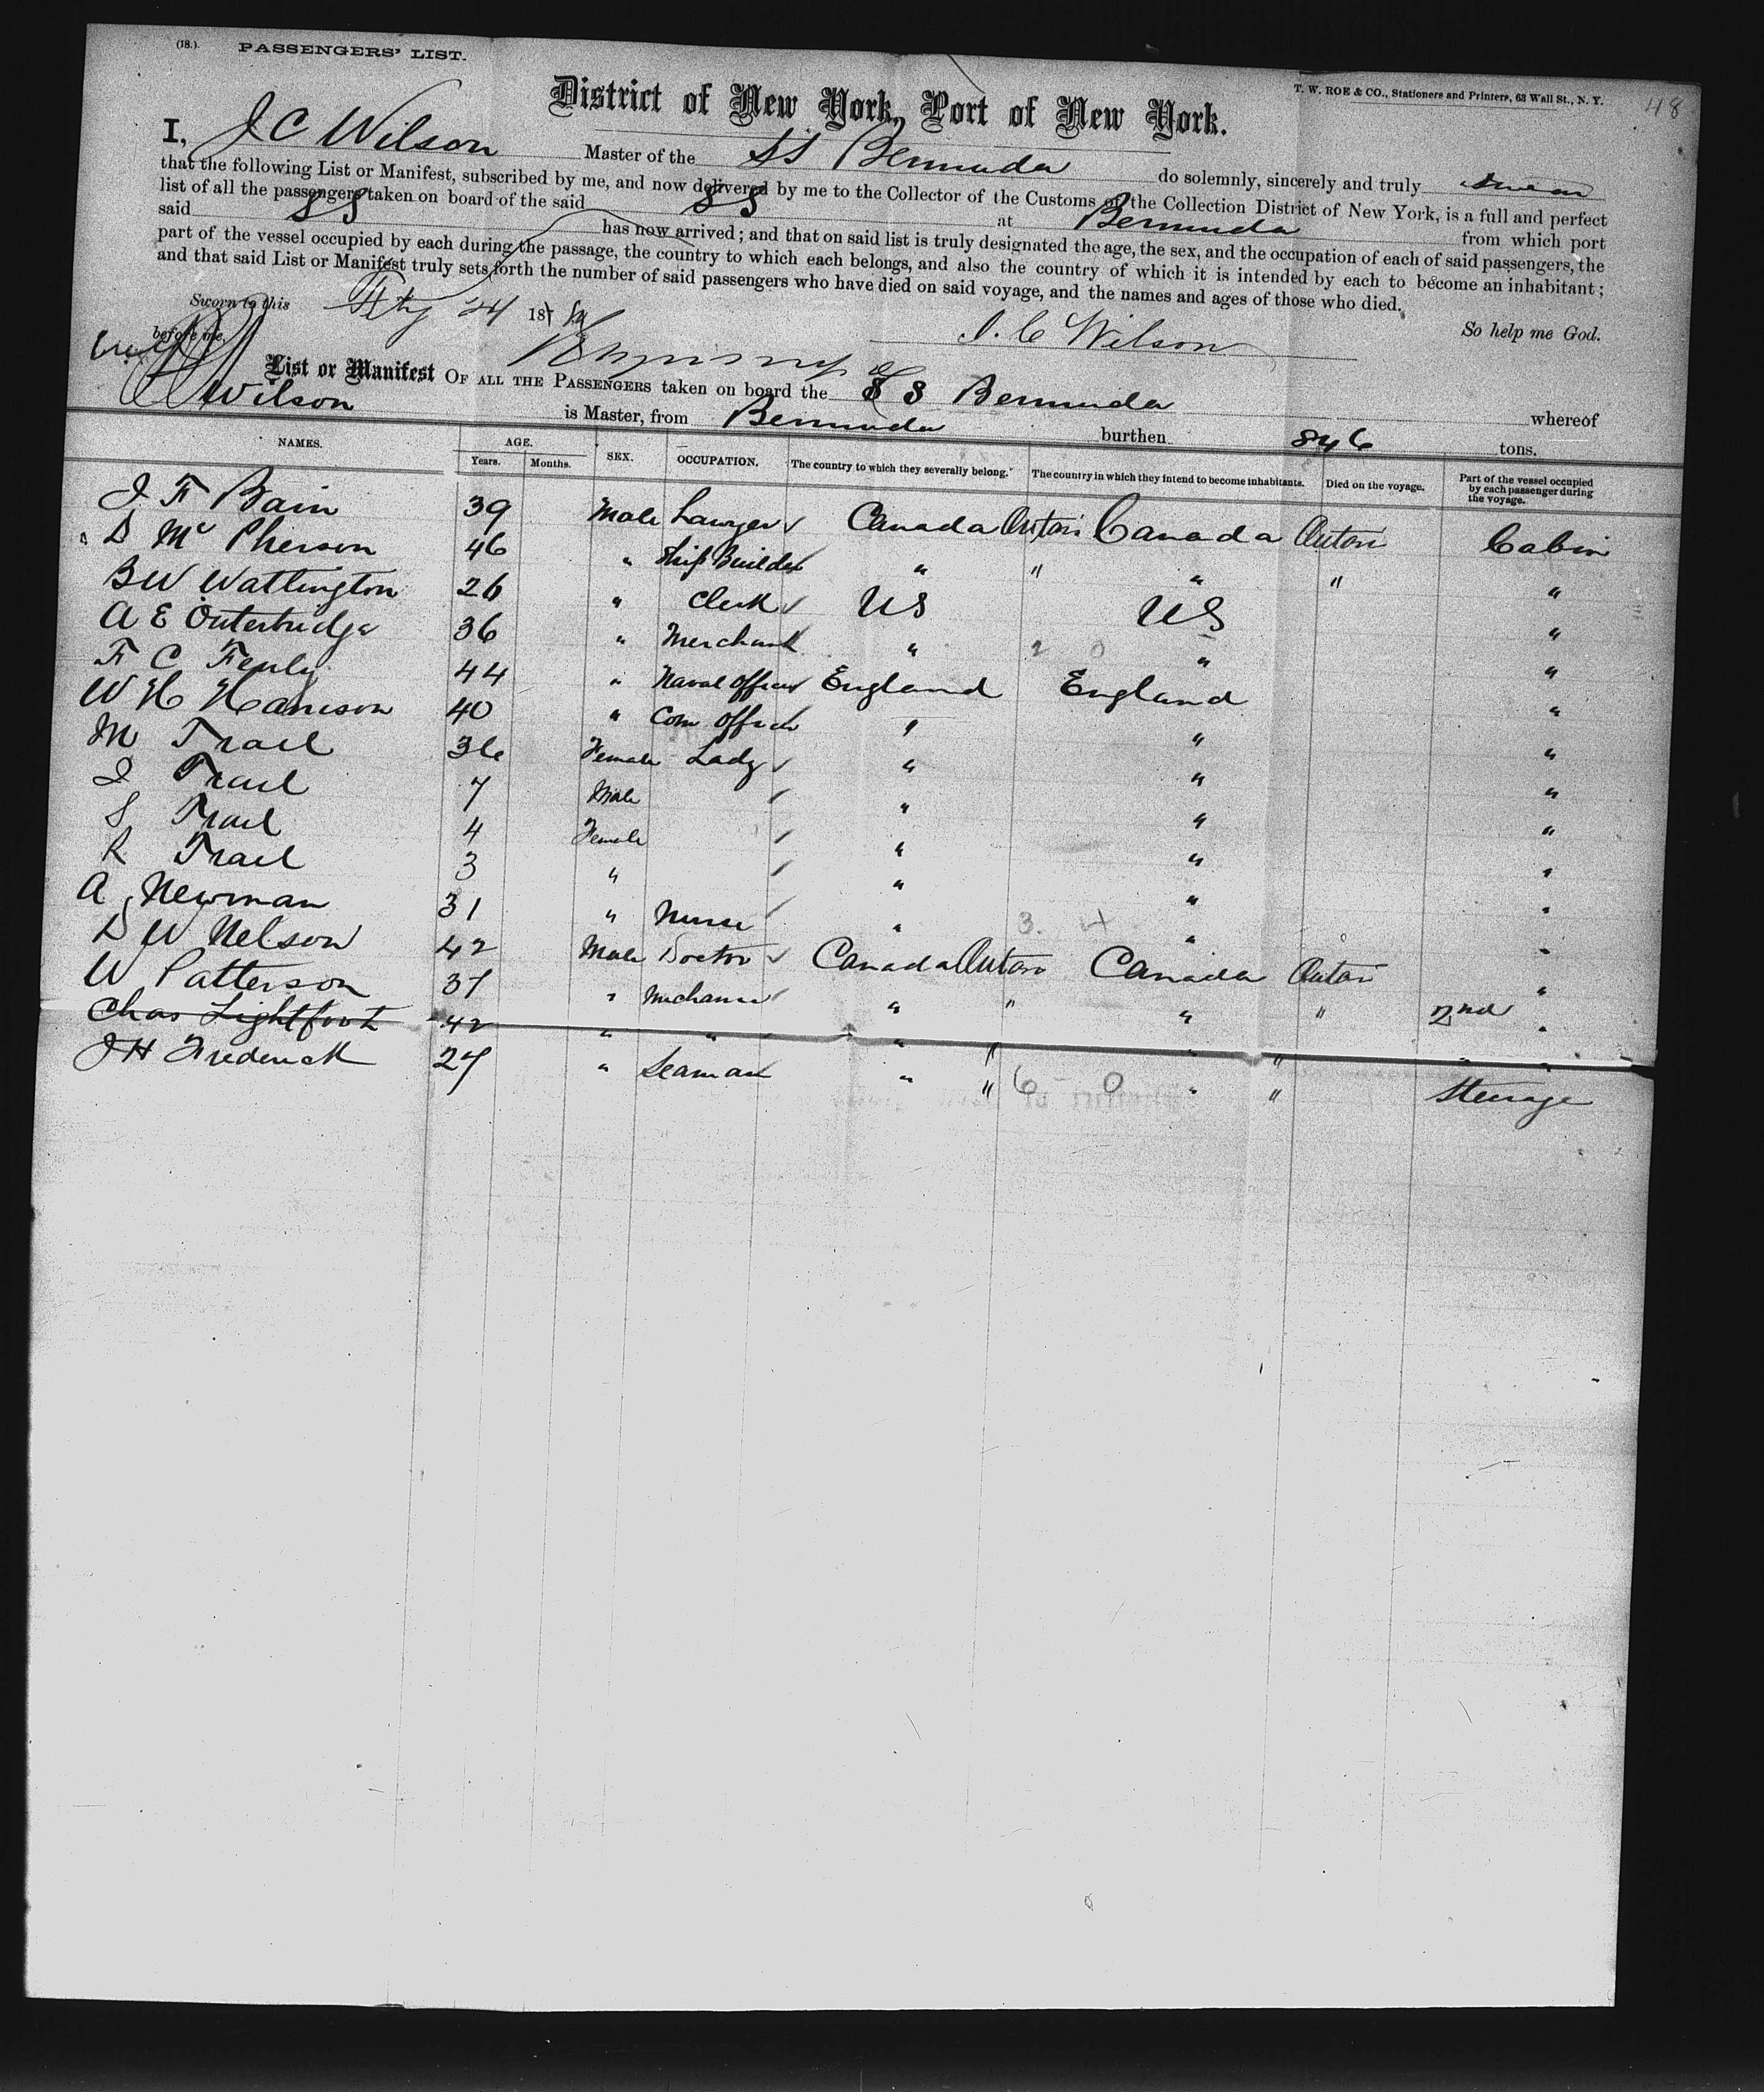 (18.) PASSENGERS' LIST.
T. W. ROE & CO., Stationers and Printers, 63 Wall St., N. Y.
48
District of New York, Port of New York.
I, J C Wilson Master of the SS Bermuda do solemnly, sincerely and truly swear
that the following List or Manifest, subscribed by me, and now delivered by me to the Collector of the Customs of the Collection District of New York, is a full and perfect
list of all the passengers taken on board of the said SS at Bermuda from which port
said SS has now arrived; and that on said list is truly designated the age, the sex, and the occupation of each of said passengers, the
part of the vessel occupied by each during the passage, the country to which each belongs, and also the country of which it is intended by each to become an inhabitant;
and that said List or Manifest truly sets forth the number of said passengers who have died on said voyage, and the names and ages of those who died.
So help me God.
Sworn to this 24 18
before me, J. C Wilson
List or Manifest OF ALL THE PASSENGERS taken on board the SS Bermuda whereof
Wilson is Master, from Bermuda burthen 846 tons.
NAMES. AGE. Years. Months. SEX. OCCUPATION. The country to which they severally belong. The country in which they intend to become inhabitants. Died on the voyage. Part of the vessel occupied by each passenger during the voyage.
J F Bain 39 Male Lawyer Canada Ontari Canada Ontari Cabin
D Mc Pherson 46 " Ship Builder " " " " "
B W Watlington 26 " Clerk US US "
A E Outerbridge 36 " Merchant " 2 0 " "
F C 44 " Naval Officer England England "
W H Harrison 40 " Com Officer " " "
M Trail 36 Female Lady " " "
J Trail 7 Male " " "
S Trail 4 Female " " "
R Trail 3 " " " "
A Newman 31 " Nurse " 3. 4 " "
D W Nelson 42 Male Doctor Canada Ontari Canada Ontari "
W Patterson 37 " Mechanic " " " " 2nd "
Chas Lightfoot 42 " " " " " " " "
J H Frederick 27 " Seaman " " 6 0 " " Steerage